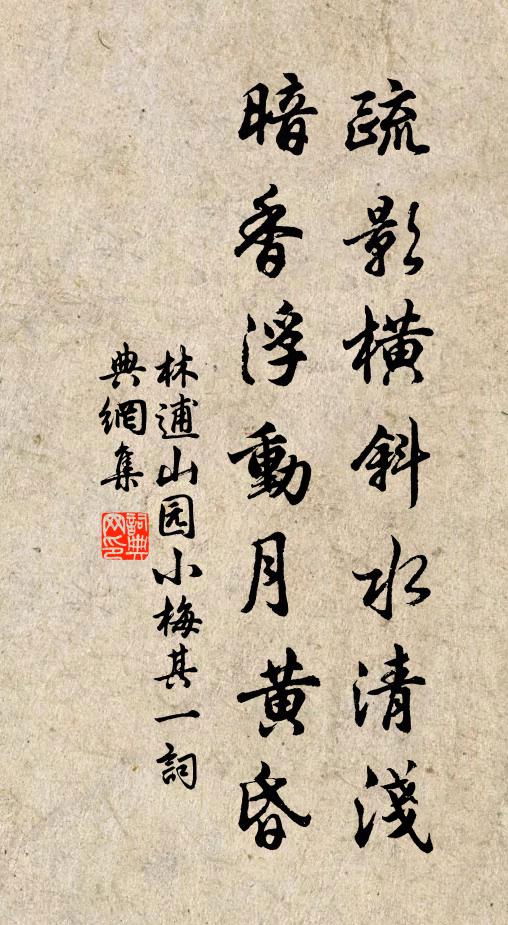 疏影横斜水清淺
暗香浮動月黃昏
林逋山园小梅其一詞
典網集
詞典
网印